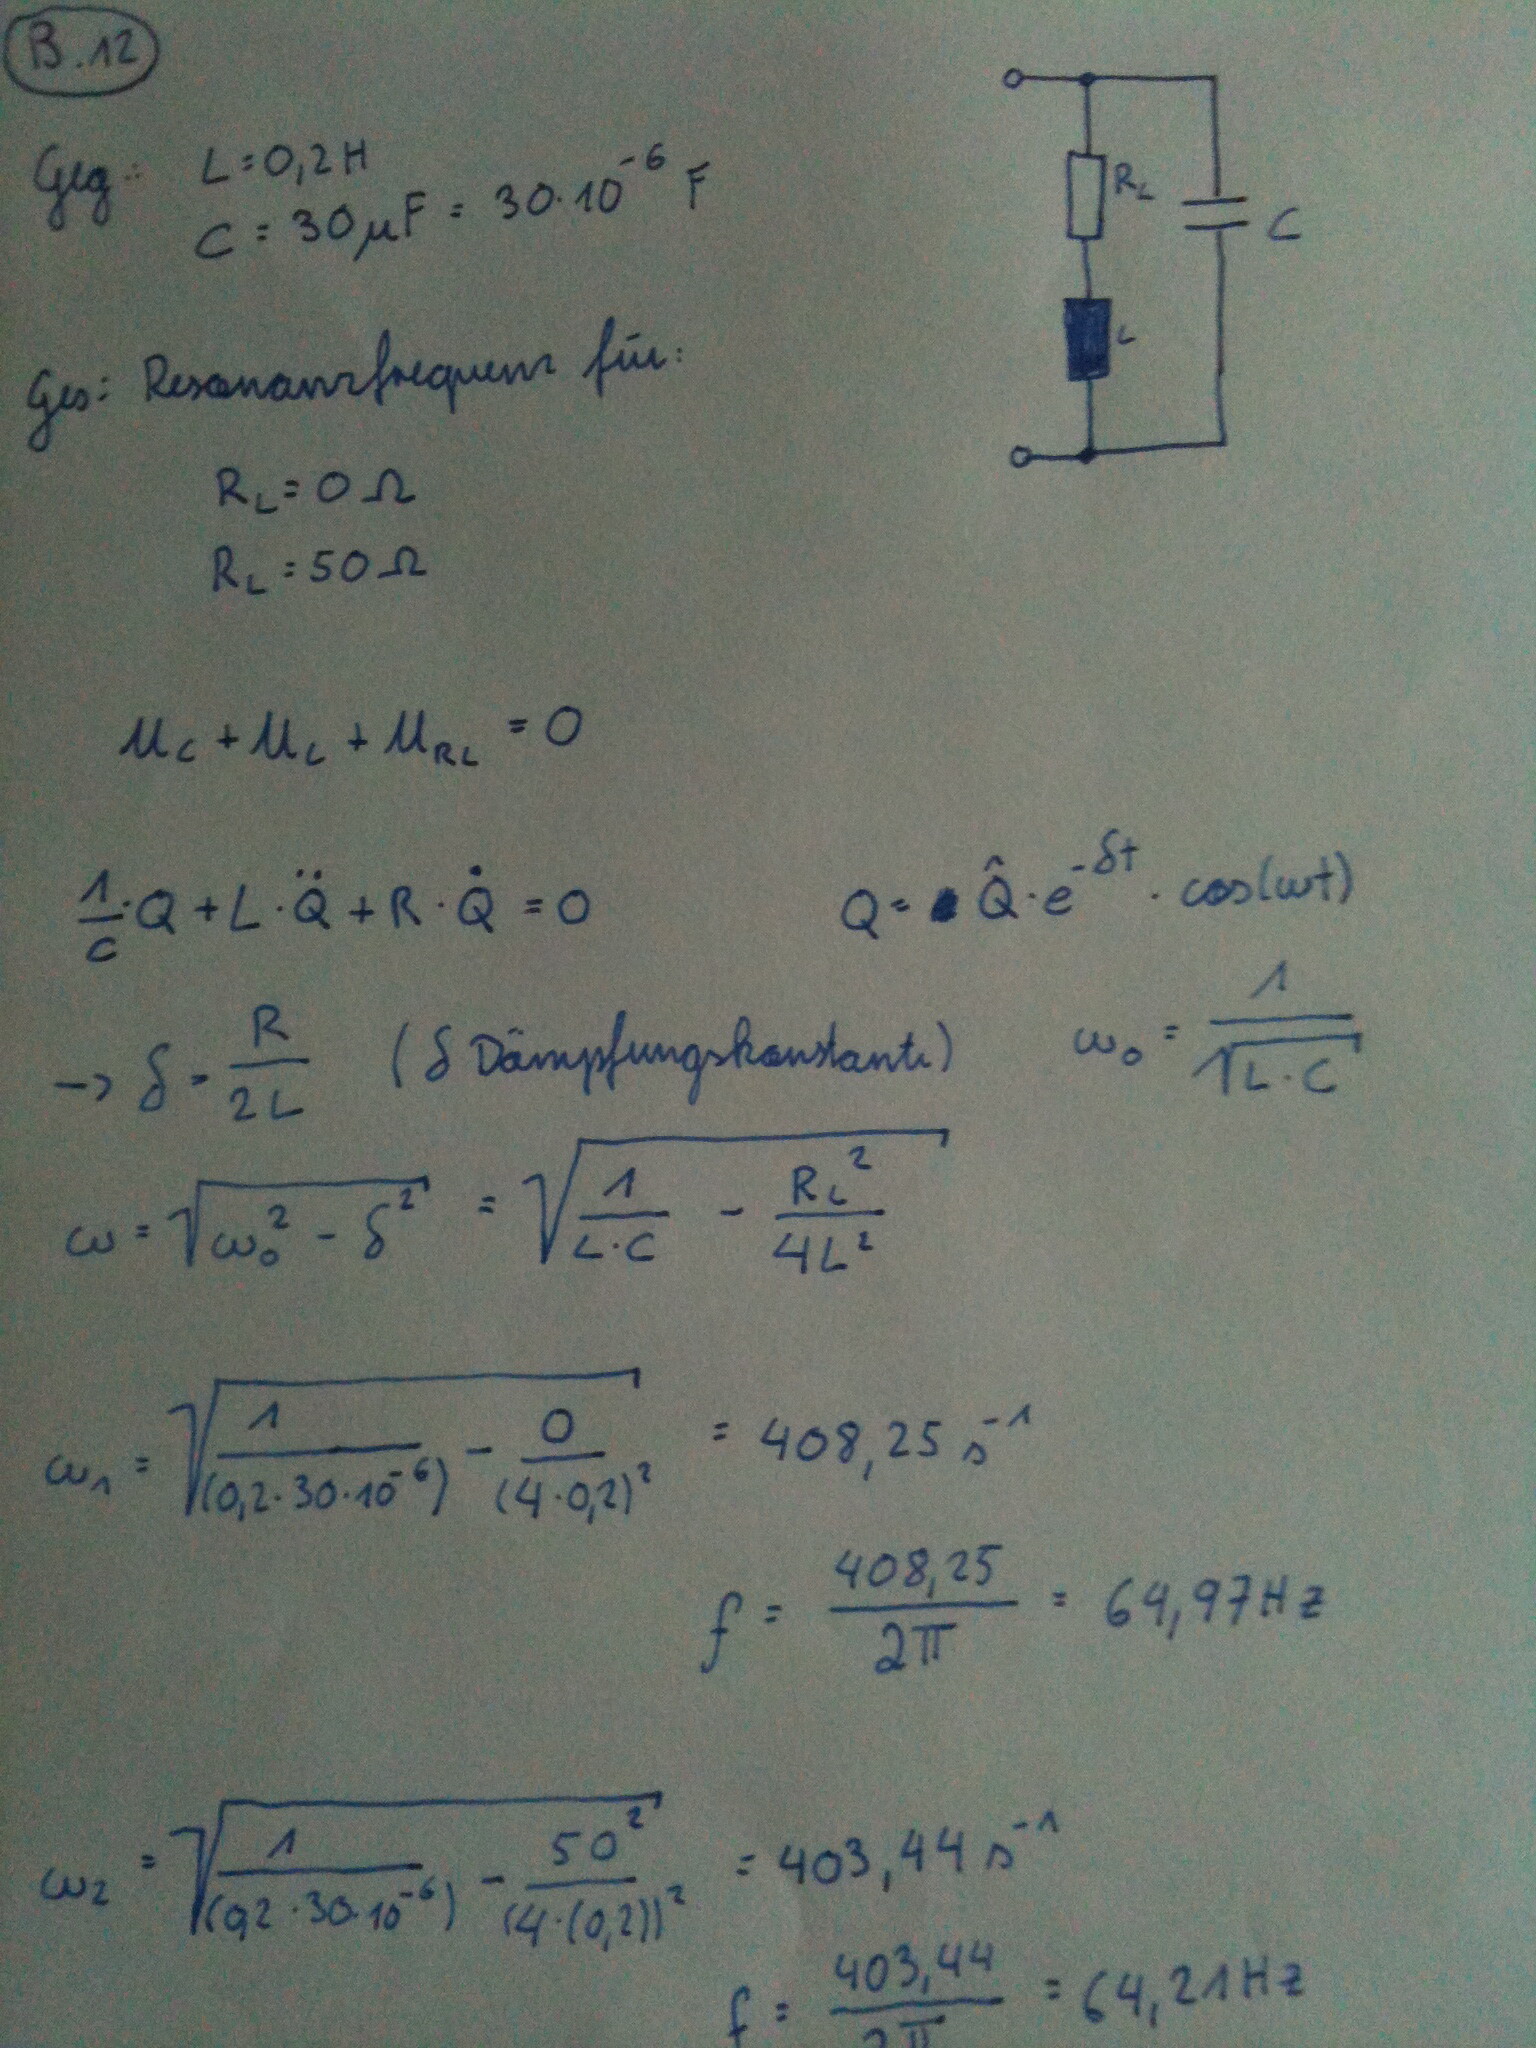 B.12
Geg.: L=0,2H
C = 30µF = 30·10⁻⁶ F
R_L
C
L
Ges: Resonanzfrequenz für:
R_L = 0 Ω
R_L = 50 Ω
u_C + u_L + u_RL = 0
1/C · Q + L · Q̈ + R · Q̇ = 0
Q = Q̂ · e^(-δt) · cos(ωt)
-> δ = R/2L (δ Dämpfungskonstante)
ω₀ = 1/√(L·C)
ω = √(ω₀² - δ²) = √(1/(L·C) - R_L²/4L²)
ω₁ = √(1/(0,2·30·10⁻⁶) - 0/(4·0,2)²) = 408,25 s⁻¹
f = 408,25/2π = 64,97Hz
ω₂ = √(1/(0,2·30·10⁻⁶) - 50²/(4·(0,2))²) = 403,44 s⁻¹
f = 403,44/2π = 64,21Hz